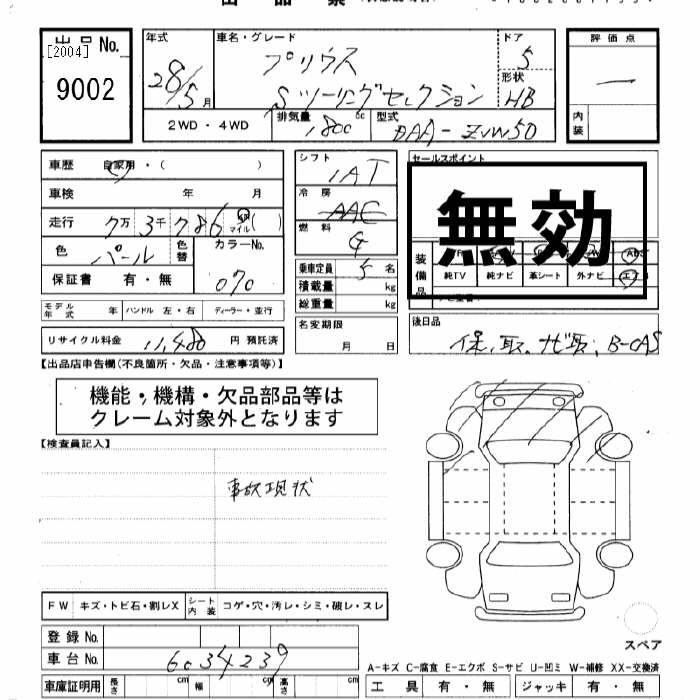 出品票
出品 No. [2004] 9002
年式 28/5月
車名・グレード プリウス Sツーリングセレクション
ドア 5
形状 HB
評価点 —
内装
2WD・4WD 排気量 1800 cc 型式 DAA-ZVW50
車歴 自家用・( )
車検 年 月
走行 7万3千786 km マイル ( )
色 パール 色替 カラーNo. 070
保証書 有・無
モデル年式 年 ハンドル 左・右 ディーラー・並行
リサイクル料金 11,480 円 預託済
シフト IAT
冷房 AAC
燃料 G
乗車定員 5 名
積載量 kg
総重量 kg
名変期限 月 日
セールスポイント
無効
装備品
純TV 純ナビ 革シート 外ナビ エアB
後日品
保,取,ナビ取,B-CAS
【出品店申告欄(不良箇所・欠品・注意事項等)】
機能・機構・欠品部品等は
クレーム対象外となります
【検査員記入】
事故現状
FW キズ・トビ石・割レX シート内装 コゲ・穴・汚レ・シミ・破レ・スレ
登録 No.
車台 No. 6034239
車庫証明用 長さ cm 幅 cm 高さ cm
スペア
A-キズ C-腐食 E-エクボ S-サビ U-凹ミ W-補修 XX-交換済
工具 有・無 ジャッキ 有・無